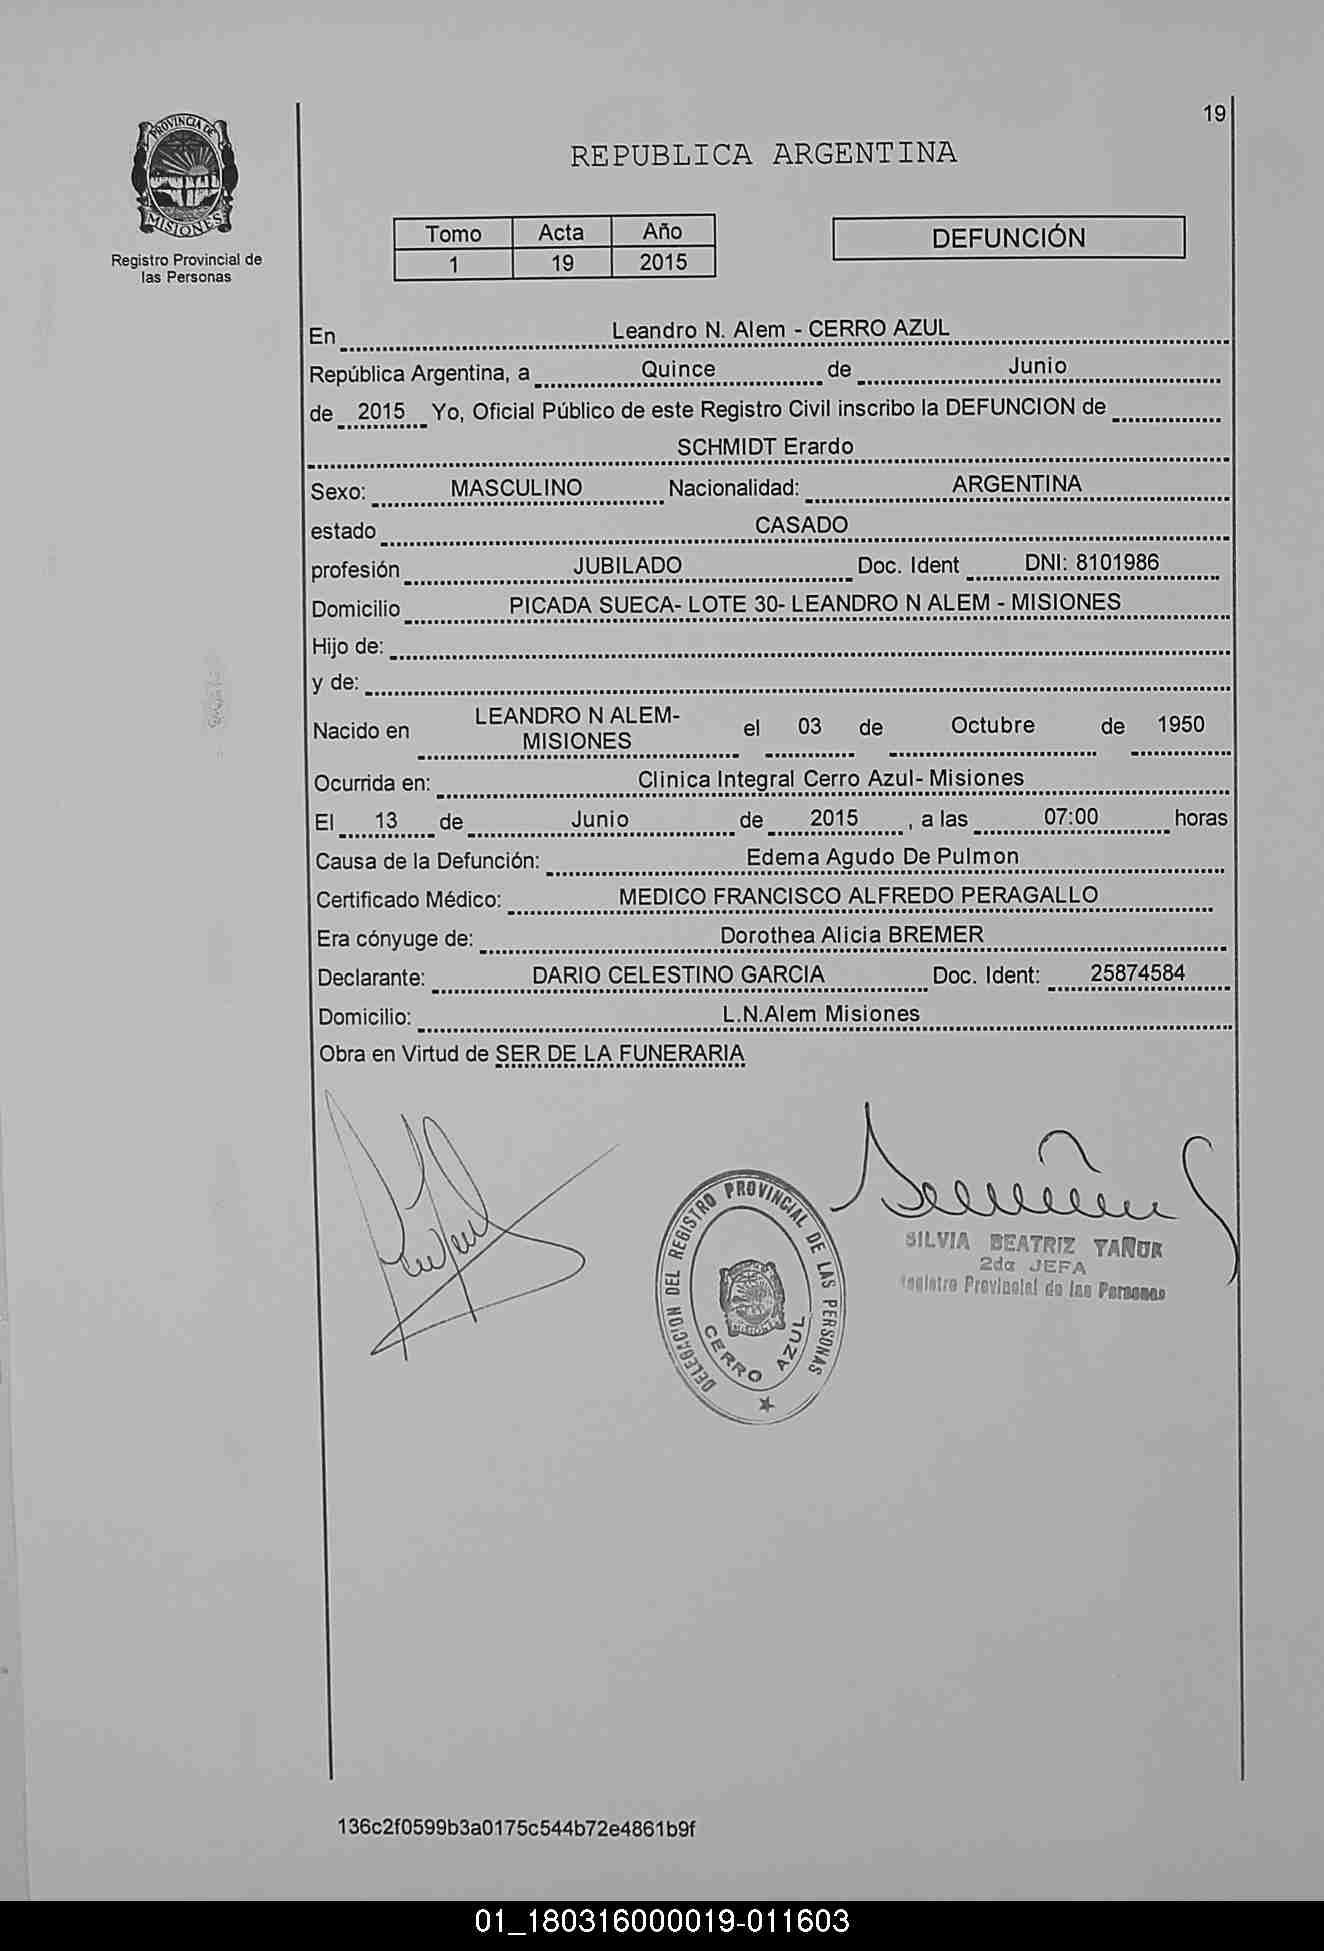 19
PROVINCIA DE
MISIONES
Registro Provincial de
las Personas
REPUBLICA ARGENTINA
Tomo Acta Año
1 19 2015
DEFUNCIÓN
En Leandro N. Alem - CERRO AZUL
República Argentina, a Quince de Junio
de 2015 Yo, Oficial Público de este Registro Civil inscribo la DEFUNCION de
SCHMIDT Erardo
Sexo: MASCULINO Nacionalidad: ARGENTINA
estado CASADO
profesión JUBILADO Doc. Ident DNI: 8101986
Domicilio PICADA SUECA- LOTE 30- LEANDRO N ALEM - MISIONES
Hijo de:
y de:
Nacido en LEANDRO N ALEM-
MISIONES el 03 de Octubre de 1950
Ocurrida en: Clinica Integral Cerro Azul- Misiones
El 13 de Junio de 2015 , a las 07:00 horas
Causa de la Defunción: Edema Agudo De Pulmon
Certificado Médico: MEDICO FRANCISCO ALFREDO PERAGALLO
Era cónyuge de: Dorothea Alicia BREMER
Declarante: DARIO CELESTINO GARCIA Doc. Ident: 25874584
Domicilio: L.N.Alem Misiones
Obra en Virtud de SER DE LA FUNERARIA
DELEGACION DEL REGISTRO PROVINCIAL DE LAS PERSONAS
CERRO AZUL
SILVIA BEATRIZ YAÑUK
2da JEFA
Registro Provincial de las Personas
136c2f0599b3a0175c544b72e4861b9f
01_180316000019-011603